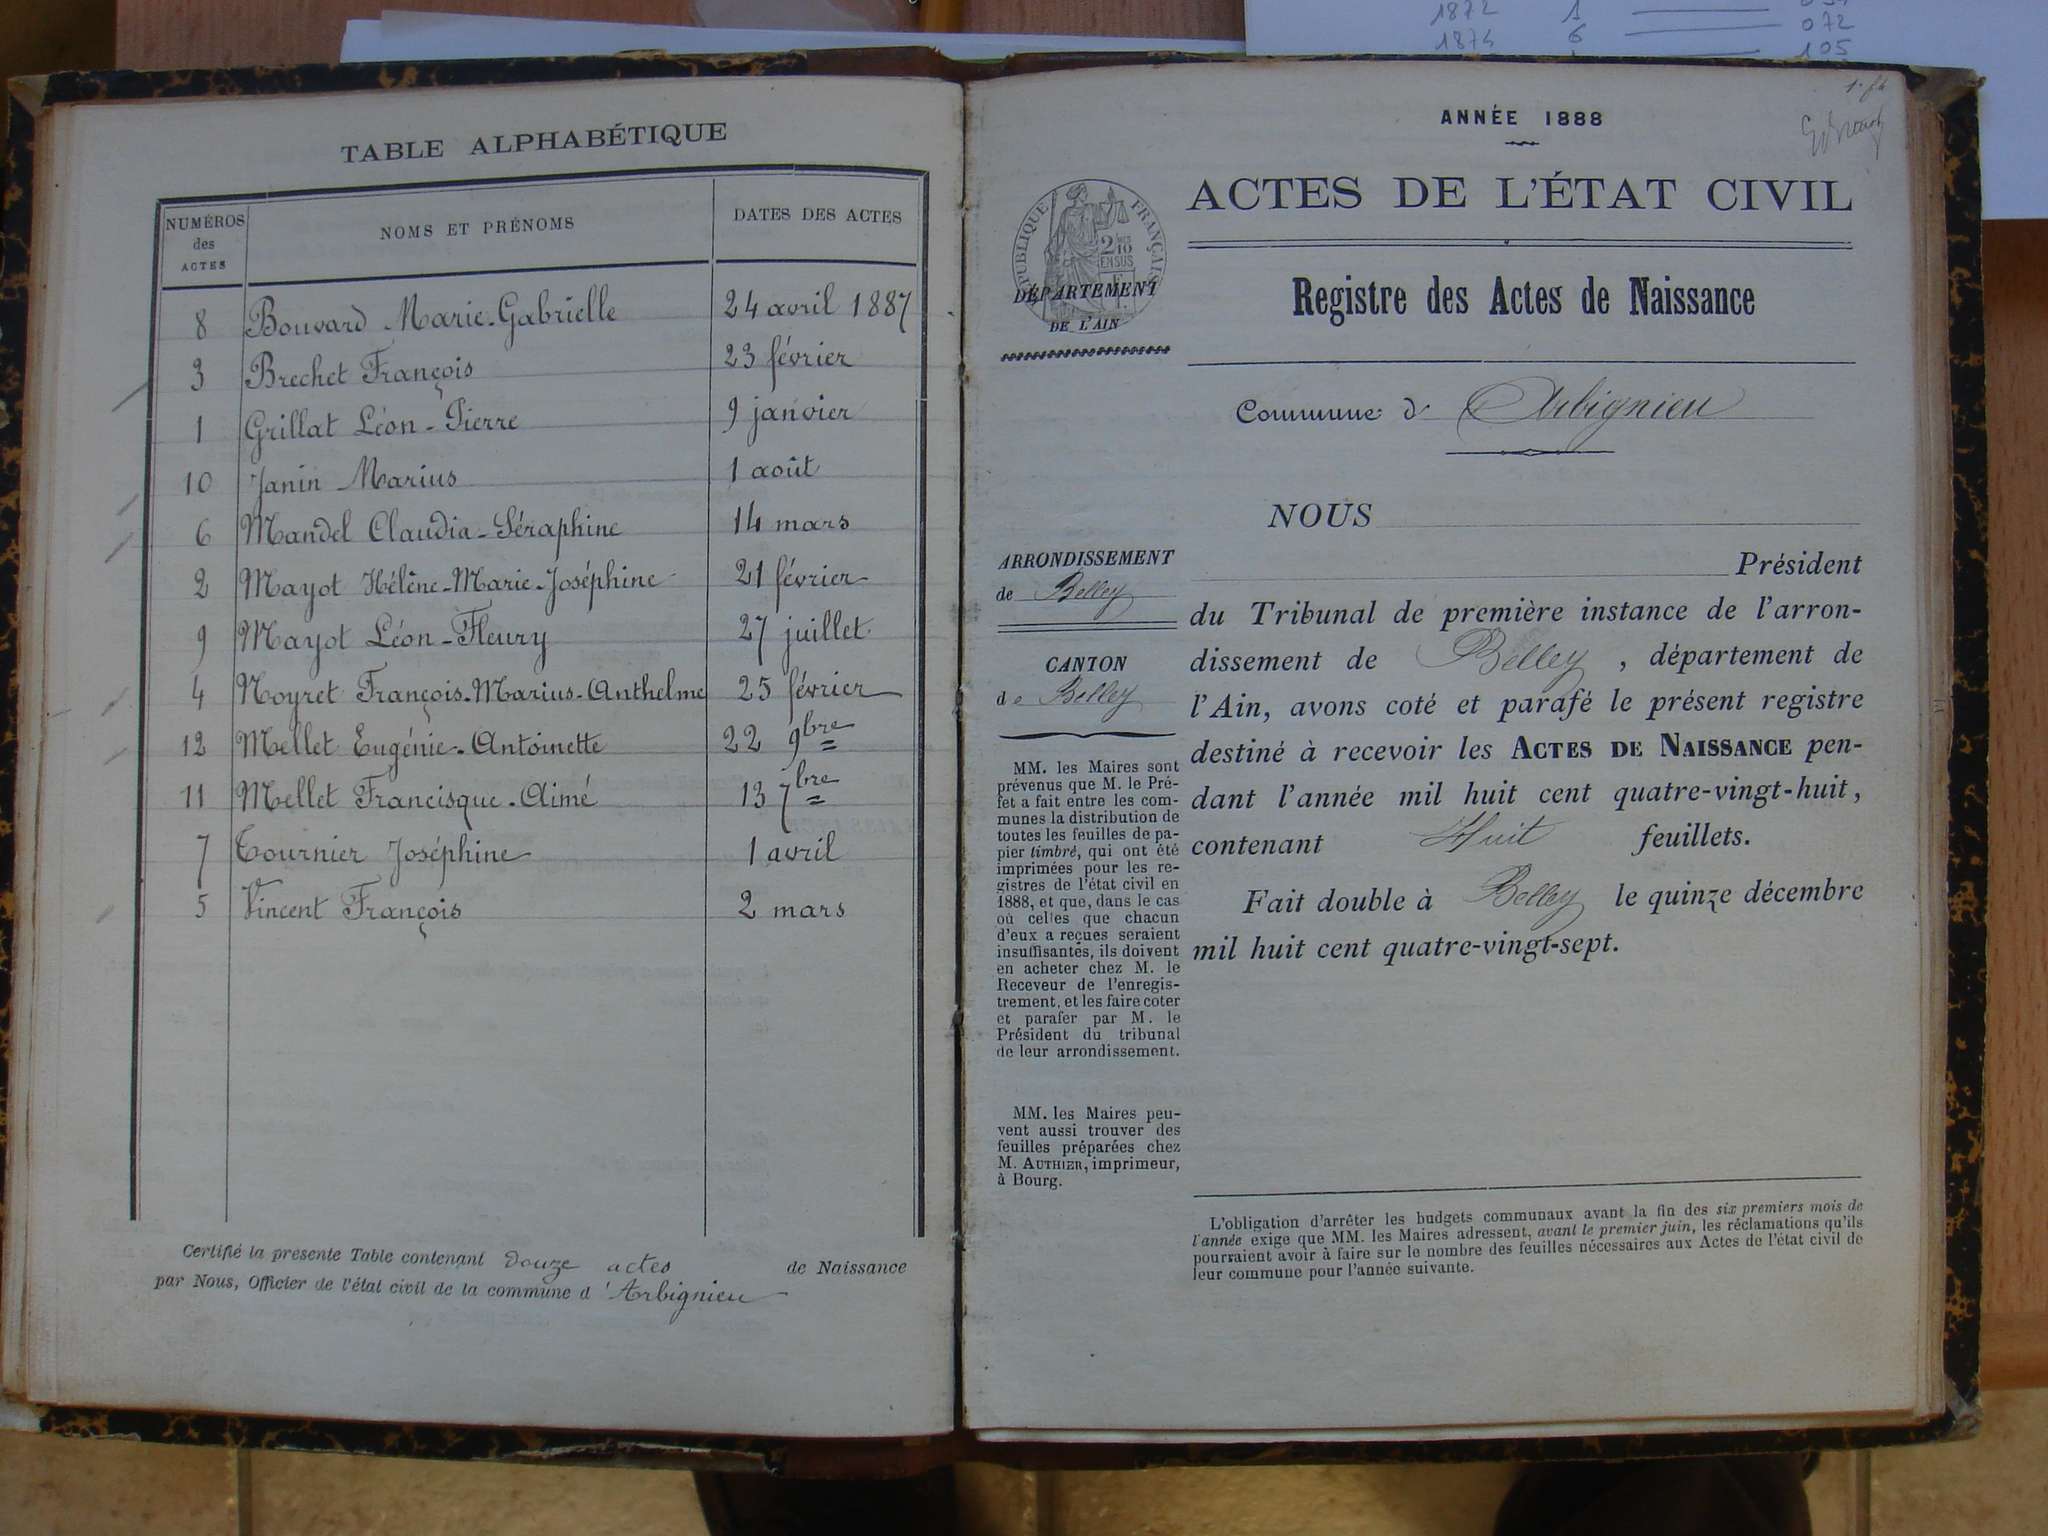 1872 1
072
1874 6
105
TABLE ALPHABÉTIQUE
NUMÉROS des ACTES NOMS ET PRÉNOMS DATES DES ACTES
8 Bouvard Marie-Gabrielle 24 avril 1887
3 Brechet François 23 février
1 Grillat Léon-Pierre 9 janvier
10 Janin Marius 1 août
6 Mandel Claudia-Séraphine 14 mars
2 Mayot Hélène-Marie-Joséphine 21 février
9 Mayot Léon-Fleury 27 juillet
4 Noyret François-Marius-Anthelme 25 février
12 Mellet Eugénie-Antoinette 22 9bre
11 Mellet Francisque-Aimé 13 7bre
7 Tournier Joséphine 1 avril
5 Vincent François 2 mars
Certifié la présente Table contenant douze actes de Naissance
par Nous, Officier de l'état civil de la commune d'Arbignieu
ANNÉE 1888
ACTES DE L'ÉTAT CIVIL
RÉPUBLIQUE FRANÇAISE
DÉPARTEMENT
DE L'AIN
Registre des Actes de Naissance
Commune d' Arbignieu
NOUS
Président
du Tribunal de première instance de l'arron-
dissement de Belley, département de
l'Ain, avons coté et parafé le présent registre
destiné à recevoir les ACTES DE NAISSANCE pen-
dant l'année mil huit cent quatre-vingt-huit,
contenant Huit feuillets.
Fait double à Belley le quinze décembre
mil huit cent quatre-vingt-sept.
ARRONDISSEMENT
de Belley
CANTON
de Belley
MM. les Maires sont
prévenus que M. le Pré-
fet a fait entre les com-
munes la distribution de
toutes les feuilles de pa-
pier timbré, qui ont été
imprimées pour les re-
gistres de l'état civil en
1888, et que, dans le cas
où celles que chacun
d'eux a reçues seraient
insuffisantes, ils doivent
en acheter chez M. le
Receveur de l'enregis-
trement, et les faire coter
et parafer par M. le
Président du tribunal
de leur arrondissement.
MM. les Maires peu-
vent aussi trouver des
feuilles préparées chez
M. AUTHIER, imprimeur,
à Bourg.
L'obligation d'arrêter les budgets communaux avant la fin des six premiers mois de
l'année exige que MM. les Maires adressent, avant le premier juin, les réclamations qu'ils
pourraient avoir à faire sur le nombre des feuilles nécessaires aux Actes de l'état civil de
leur commune pour l'année suivante.